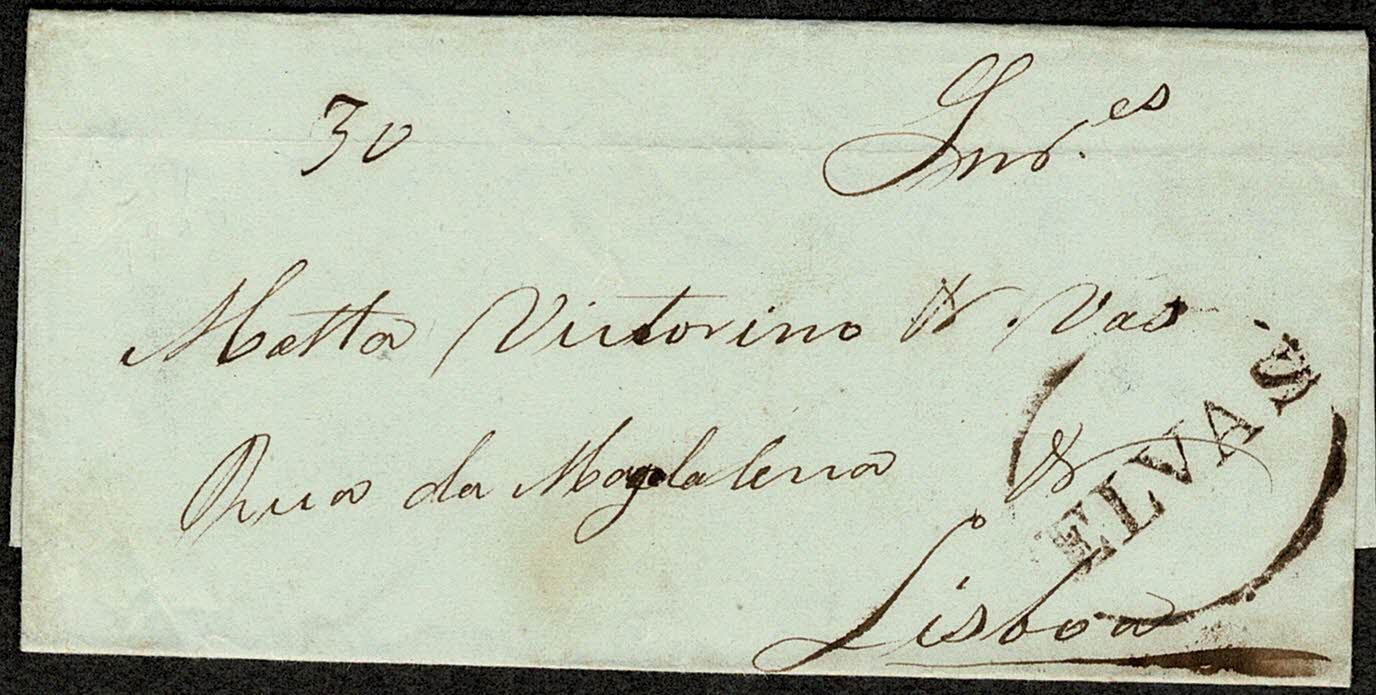 30
Snr.es
Matta Victorino & Vas
Rua da Magdalena &
ELVAS
Lisboa